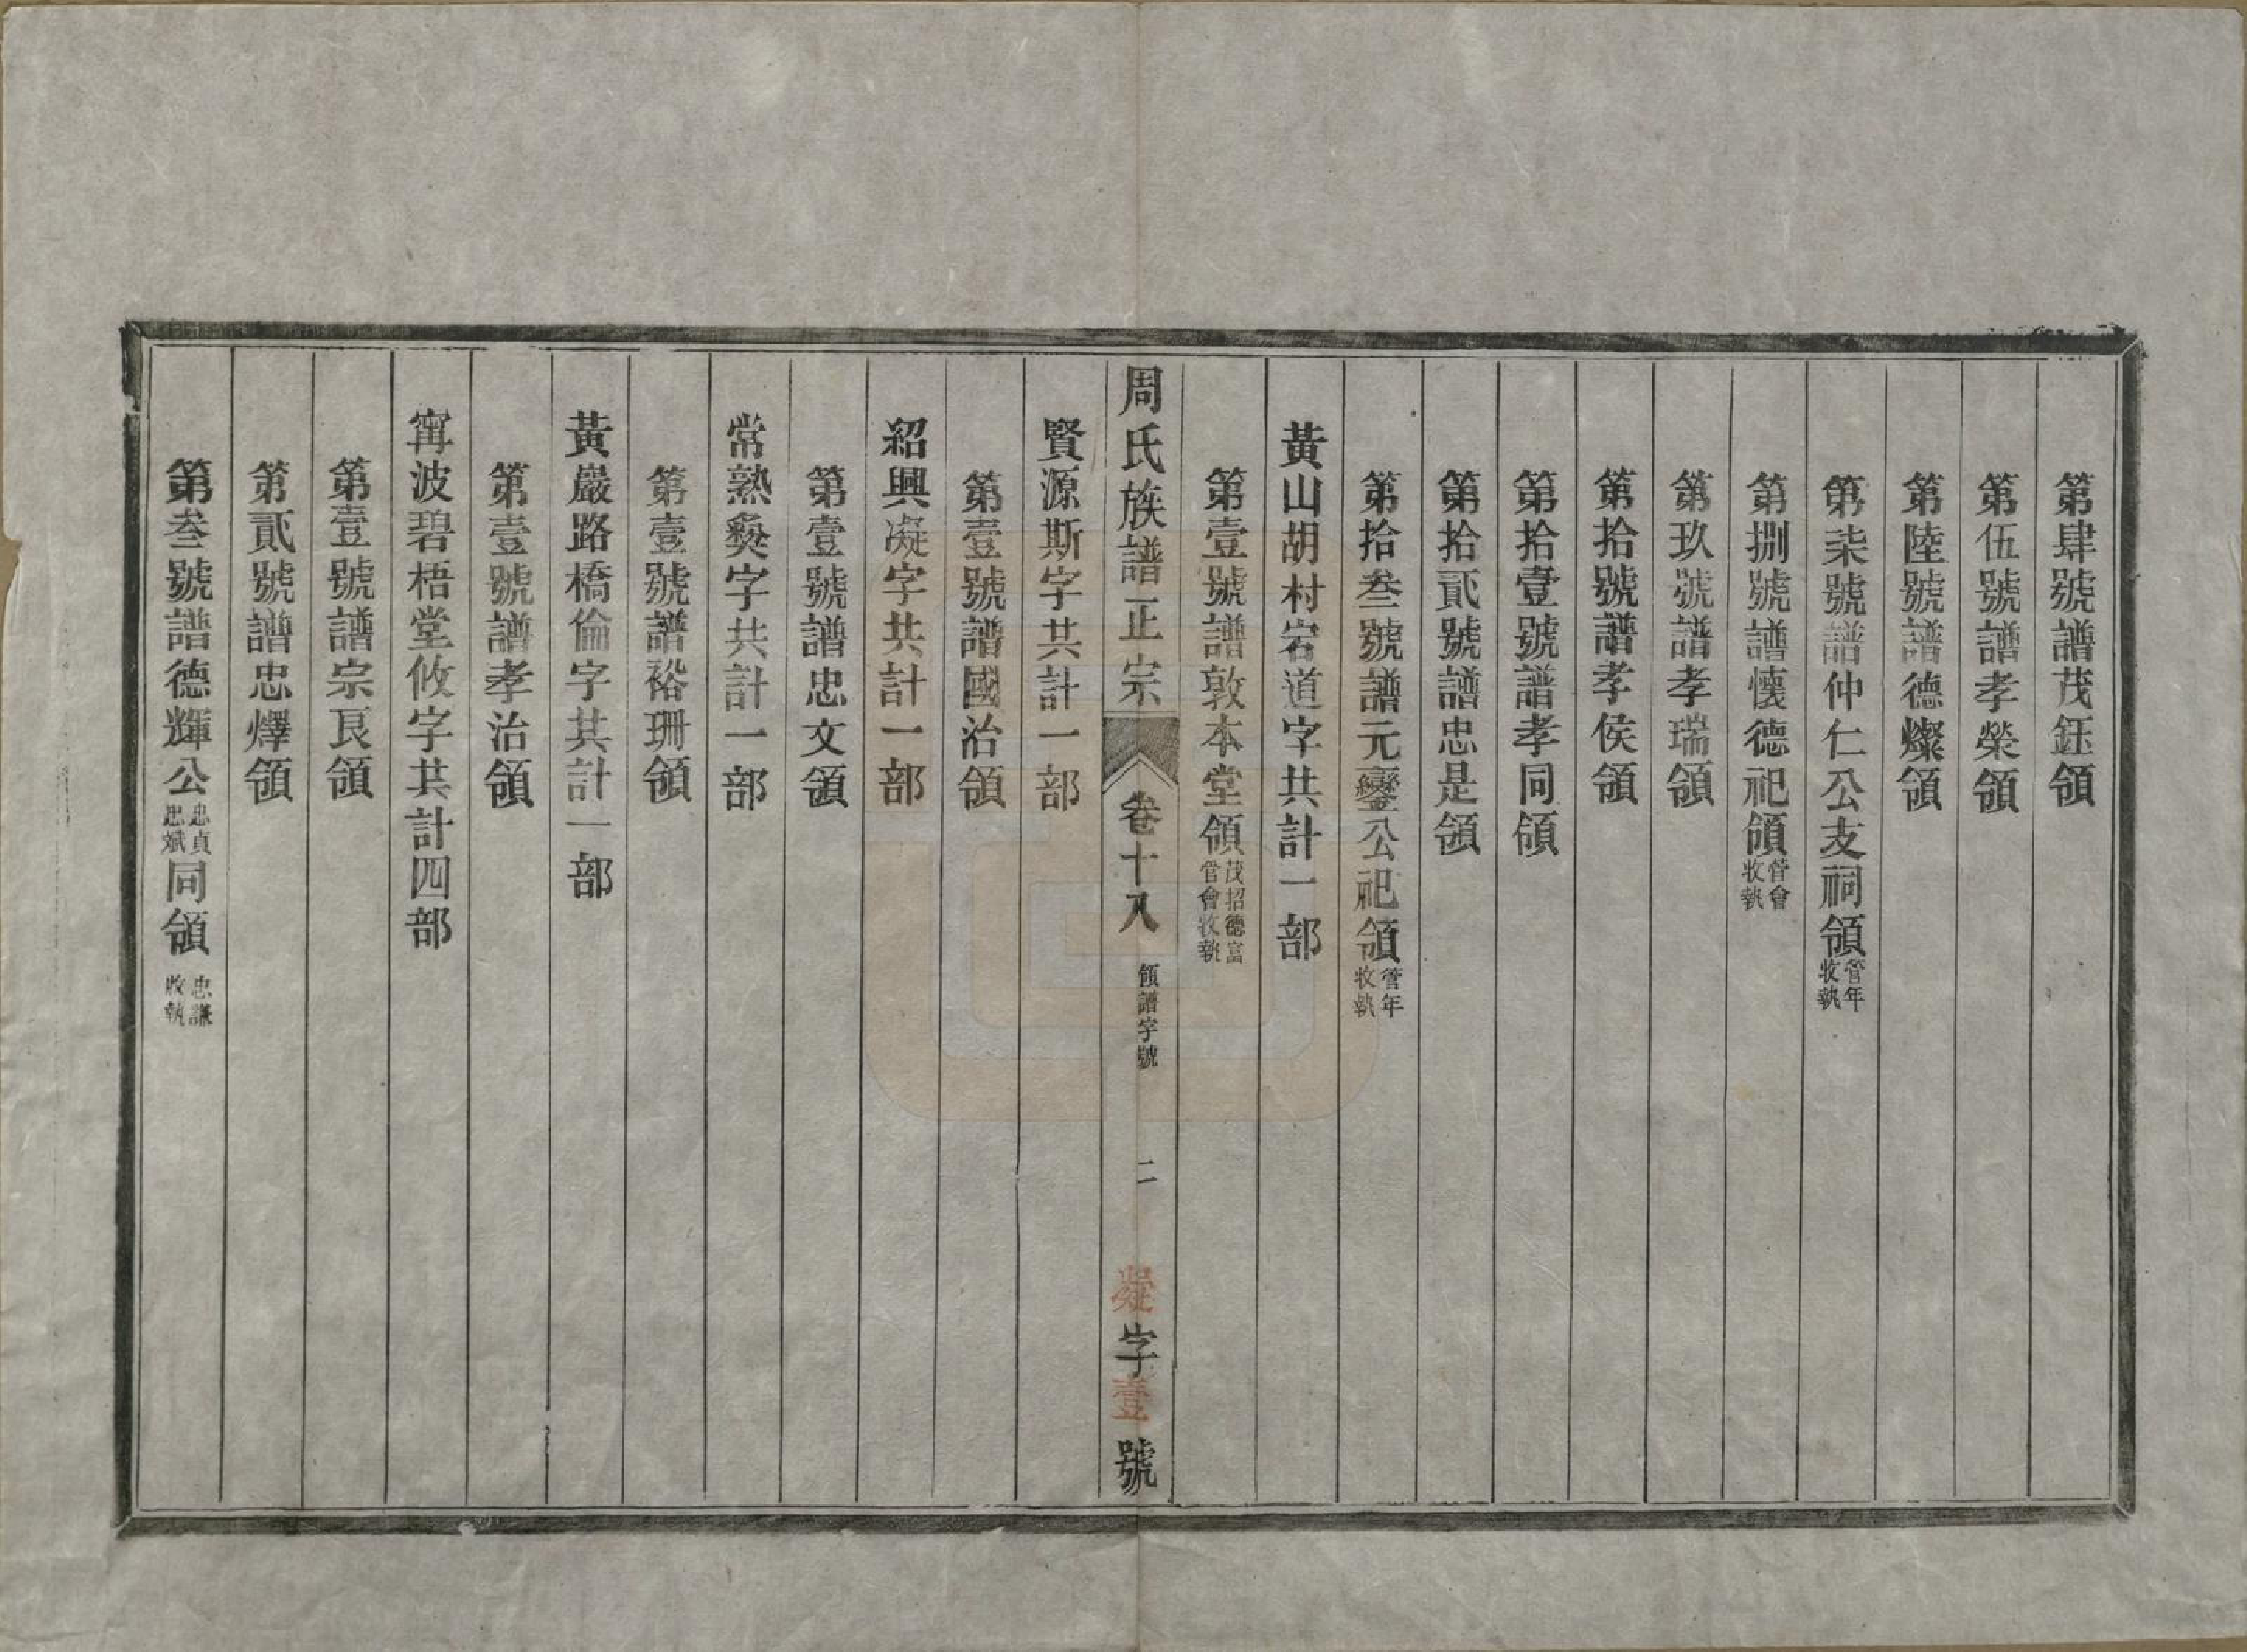 第肆號譜茂鈺領
第伍號譜孝榮領
第陸號譜德燦領
第柒號譜仲仁公支祠領管年收執
第捌號譜懷德祀領管會收執
第玖號譜孝瑞領
第拾號譜孝侯領
第拾壹號譜孝同領
第拾貳號譜忠是領
第拾叁號譜元鑾公祀領管年收執
黃山胡村宕道字共計一部
第壹號譜敦本堂領茂招德富管會收執
周氏族譜正宗 卷十八 領譜字號 二 凝字壹號
賢源斯字共計一部
第壹號譜國治領
紹興凝字共計一部
第壹號譜忠文領
常熟奏字共計一部
第壹號譜裕珊領
黃巖路橋倫字共計一部
第壹號譜孝治領
甯波碧梧堂攸字共計四部
第壹號譜宗良領
第貳號譜忠燡領
第叁號譜德輝公忠貞忠斌同領忠謙收執